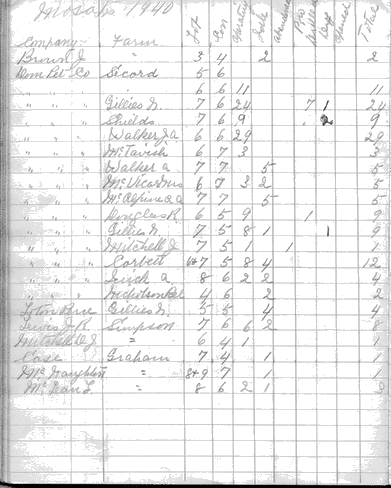 Mosa 1940
Company Farm Lot Con Gas Total
Brown J " 3 4 2 2
Dom Pet. Co Secord 5 6
" " " 6 6 11 11
" " " Gillies N. 7 6 24 7 1 24
" " " Shields 7 6 9 9
" " " Walker J.a 6 6 29 29
" " " McTavish 6 7 3 3
" " " Walker a 7 7 5 5
" " " McVicar 6 7 3 2 5
" " " McAlpine 7 7 5 5
" " " Douglas R 6 5 9 1 9
" " " Gillies N. 7 5 8 1 1 9
" " " Mitchell J 7 5 1 1 1
" " " Corbett 6+7 5 8 4 12
" " " a 8 6 2 2 4
" " " Nicholson 4 6 2 2
Gillies N. 5 5 4 4
Lewis J.R. Simpson 7 6 6 2 8
Mitchell J " 6 4 1 1
Case Graham 7 4 1 1
McNaughton " 8+9 7 1 1
McLean L " 8 6 2 1